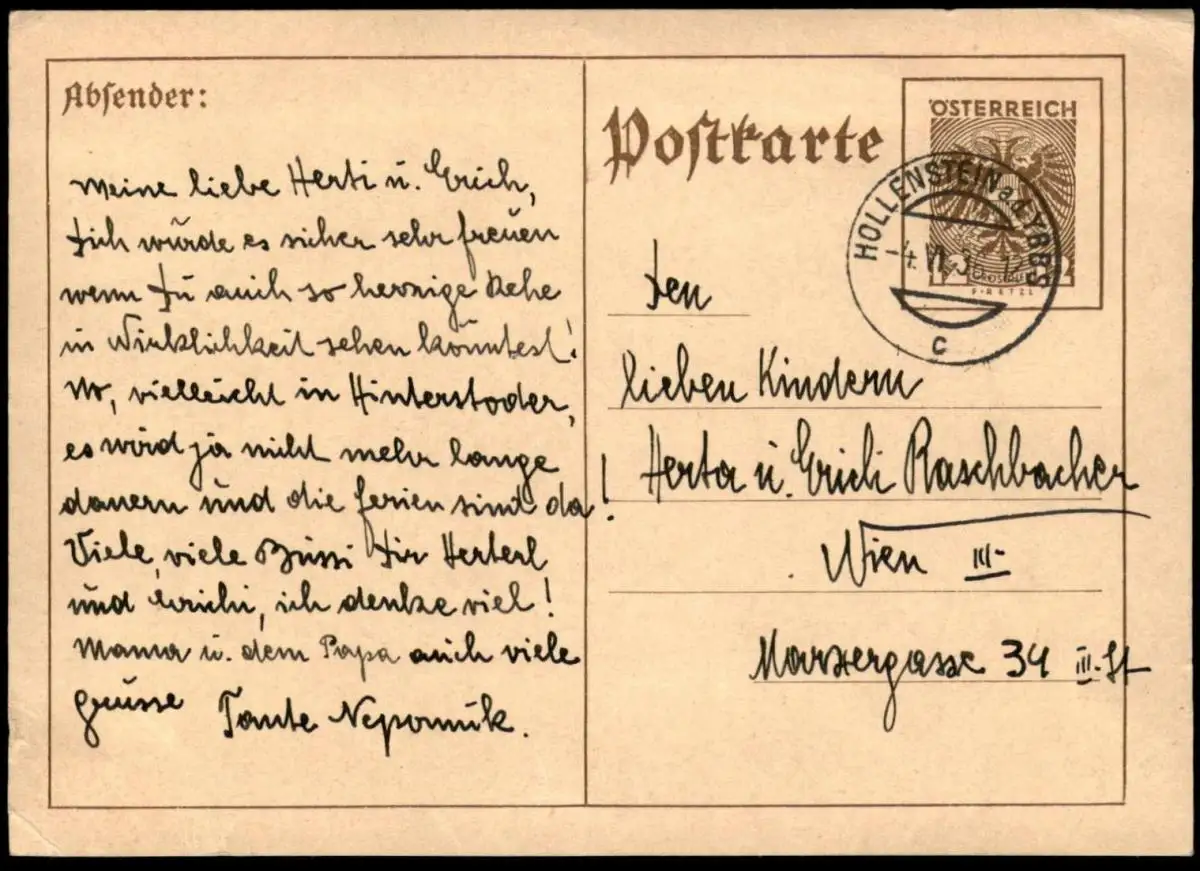 Absender:
Meine liebe Herti u. Erich,
Dich würde es sicher sehr freuen
wenn Du auch so herzige Rehe
in Wirklichkeit sehen könntest!
No, vielleicht in Hinterstoder,
es wird ja nicht mehr lange
dauern und die Ferien sind da!
Viele, viele Bussi Dir Herterl
und Erichi, ich denke viel!
Mama u. dem Papa auch viele
Grüsse Tante Nepomuk.
Postkarte
ÖSTERREICH
HOLLENSTEIN a.d. YBBS
-4. VI. 3
C
Den
lieben Kindern
Herta u. Erich Raschbacher
Wien III-
Marxergasse 34 III. St